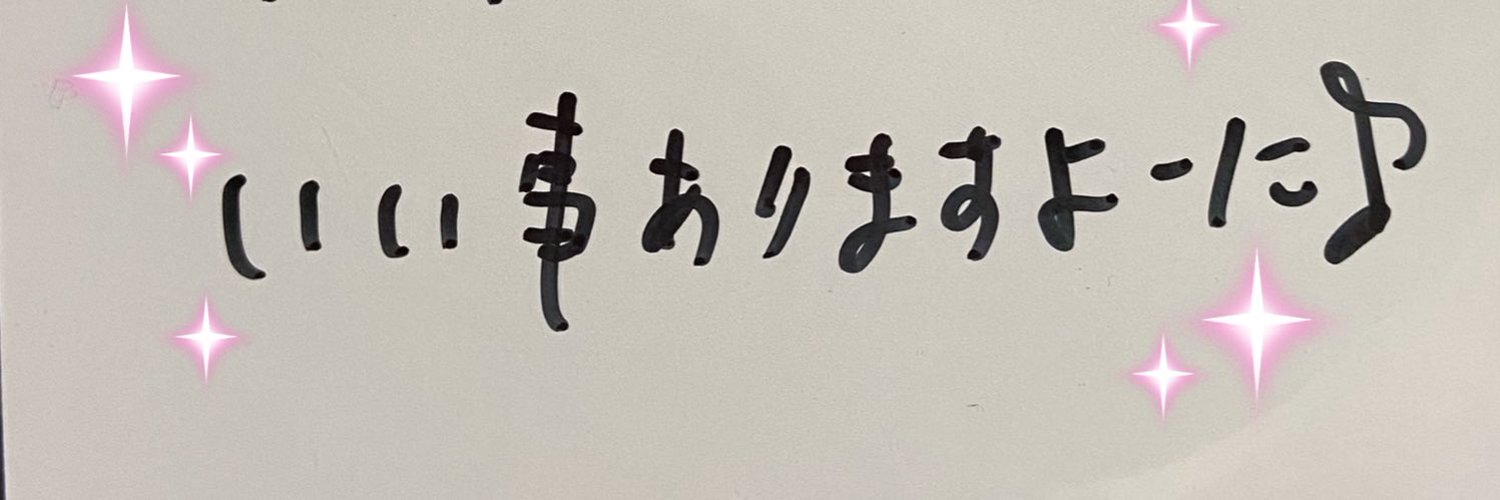 いい事ありますよーに♪